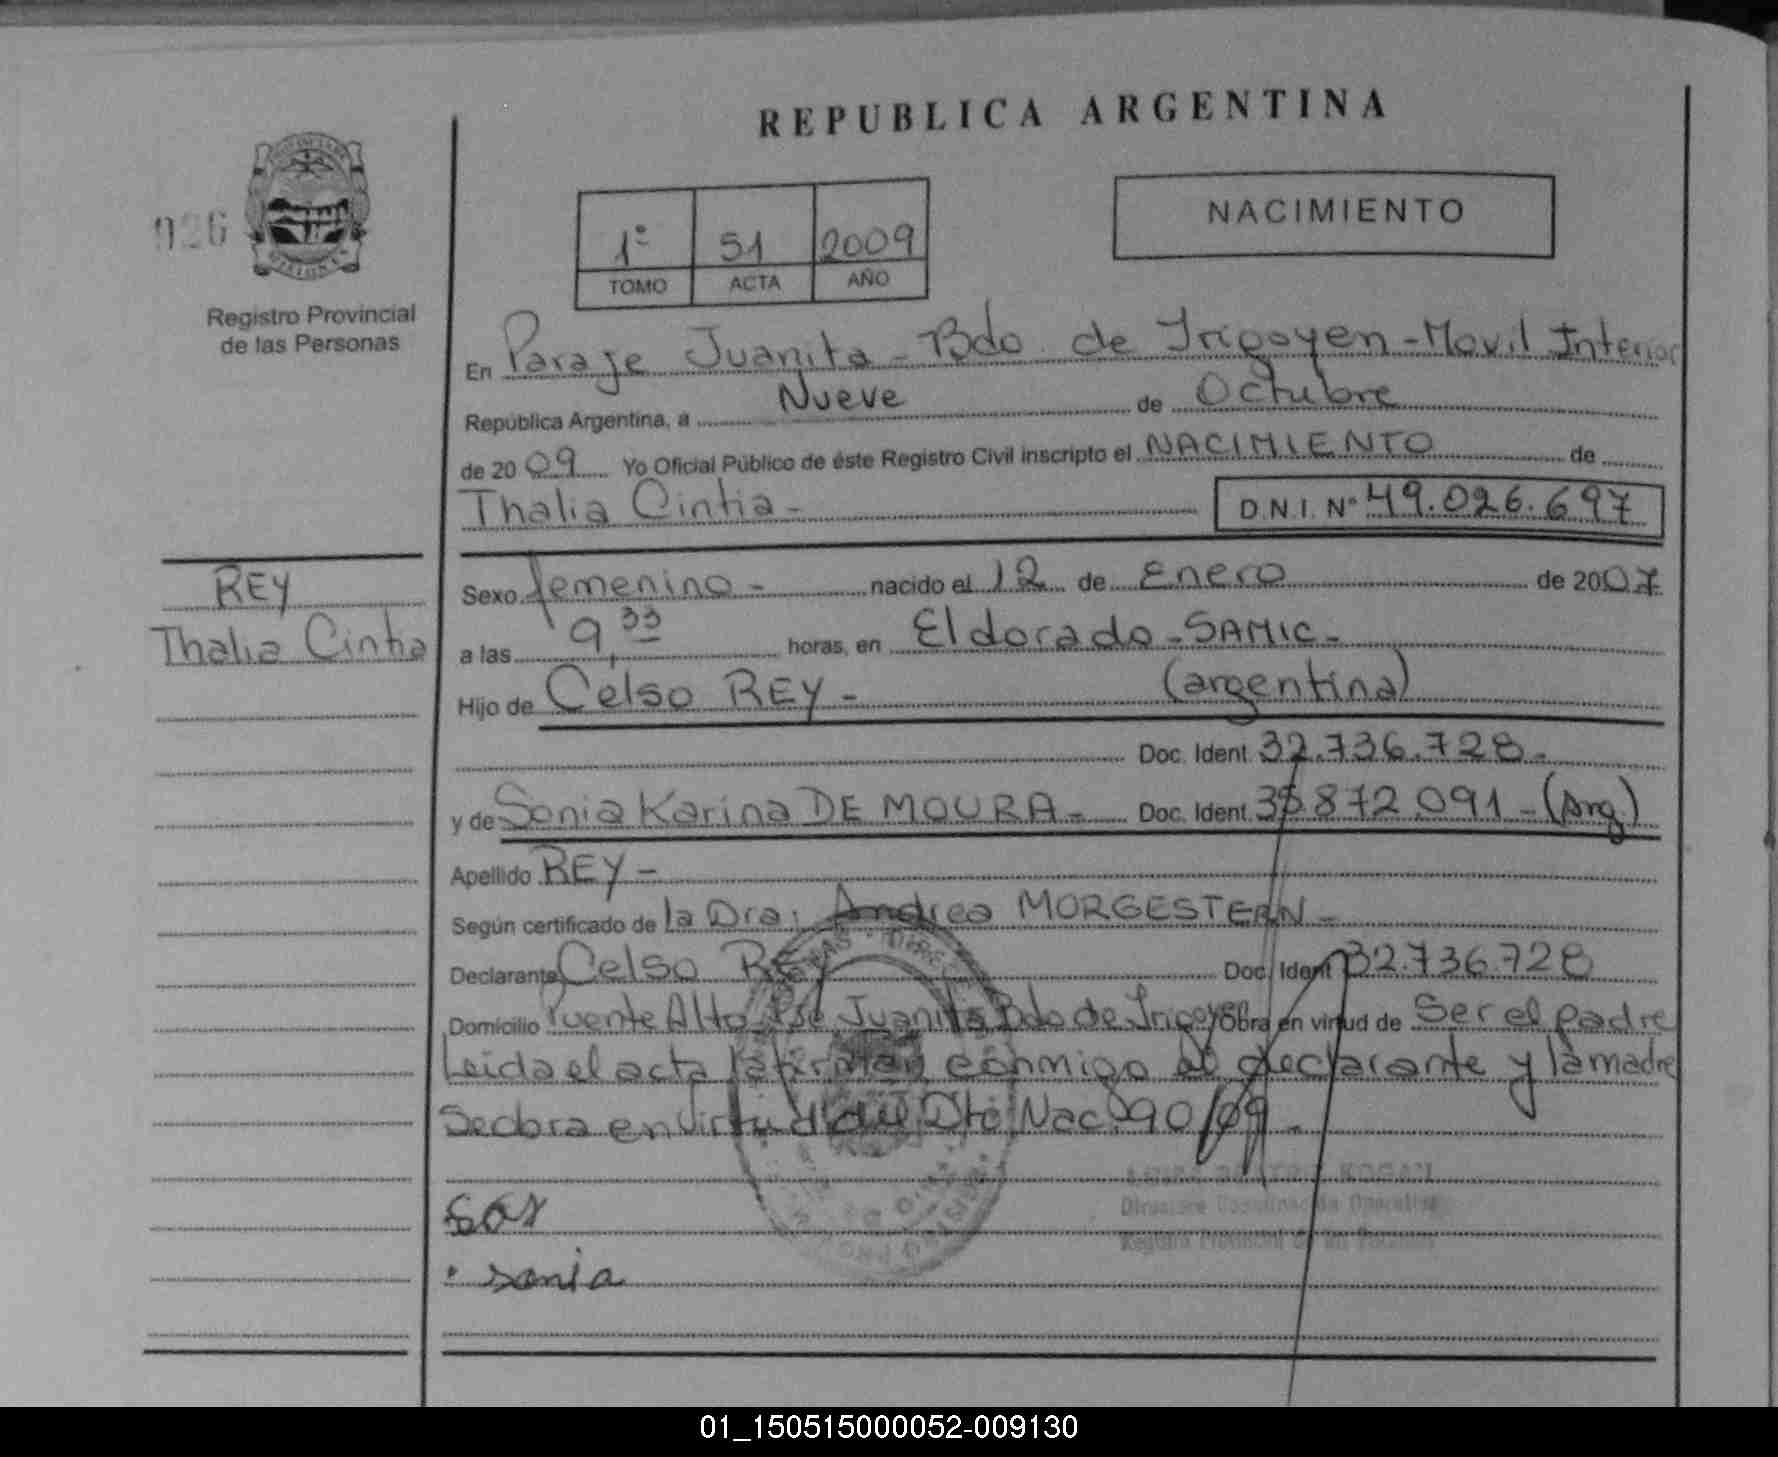 REPUBLICA ARGENTINA
026
NACIMIENTO
1º 51 2009
TOMO ACTA AÑO
Registro Provincial
de las Personas
En Paraje Juanita - Bdo. de Irigoyen - Movil Interior
República Argentina, a Nueve de Octubre
de 2009 Yo Oficial Público de éste Registro Civil inscripto el NACIMIENTO de
Thalia Cintia - D.N.I. Nº 49.026.697
REY
Thalia Cintia
Sexo femenino - nacido el 12 de Enero de 2007
a las 9,33 horas, en Eldorado - SAMIC -
Hijo de Celso REY - (argentina)
Doc. Ident. 32.736.728 -
y de Sonia Karina DE MOURA - Doc. Ident. 38.872.091 - (Arg)
Apellido REY -
Según certificado de la Dra: Andrea MORGESTERN -
Declarante Celso REY Doc. Ident. 32.736.728
Domicilio Puente Alto Pje Juanita Bdo de Irigoyen Obra en virtud de Ser el padre
Leida el acta la firman conmigo el declarante y la madre
Se obra en virtud del Dto Nac. 90/09 -
KOGAN
Directora Coordinación Operativa
Registro Provincial de las Personas
sonia
01_150515000052-009130